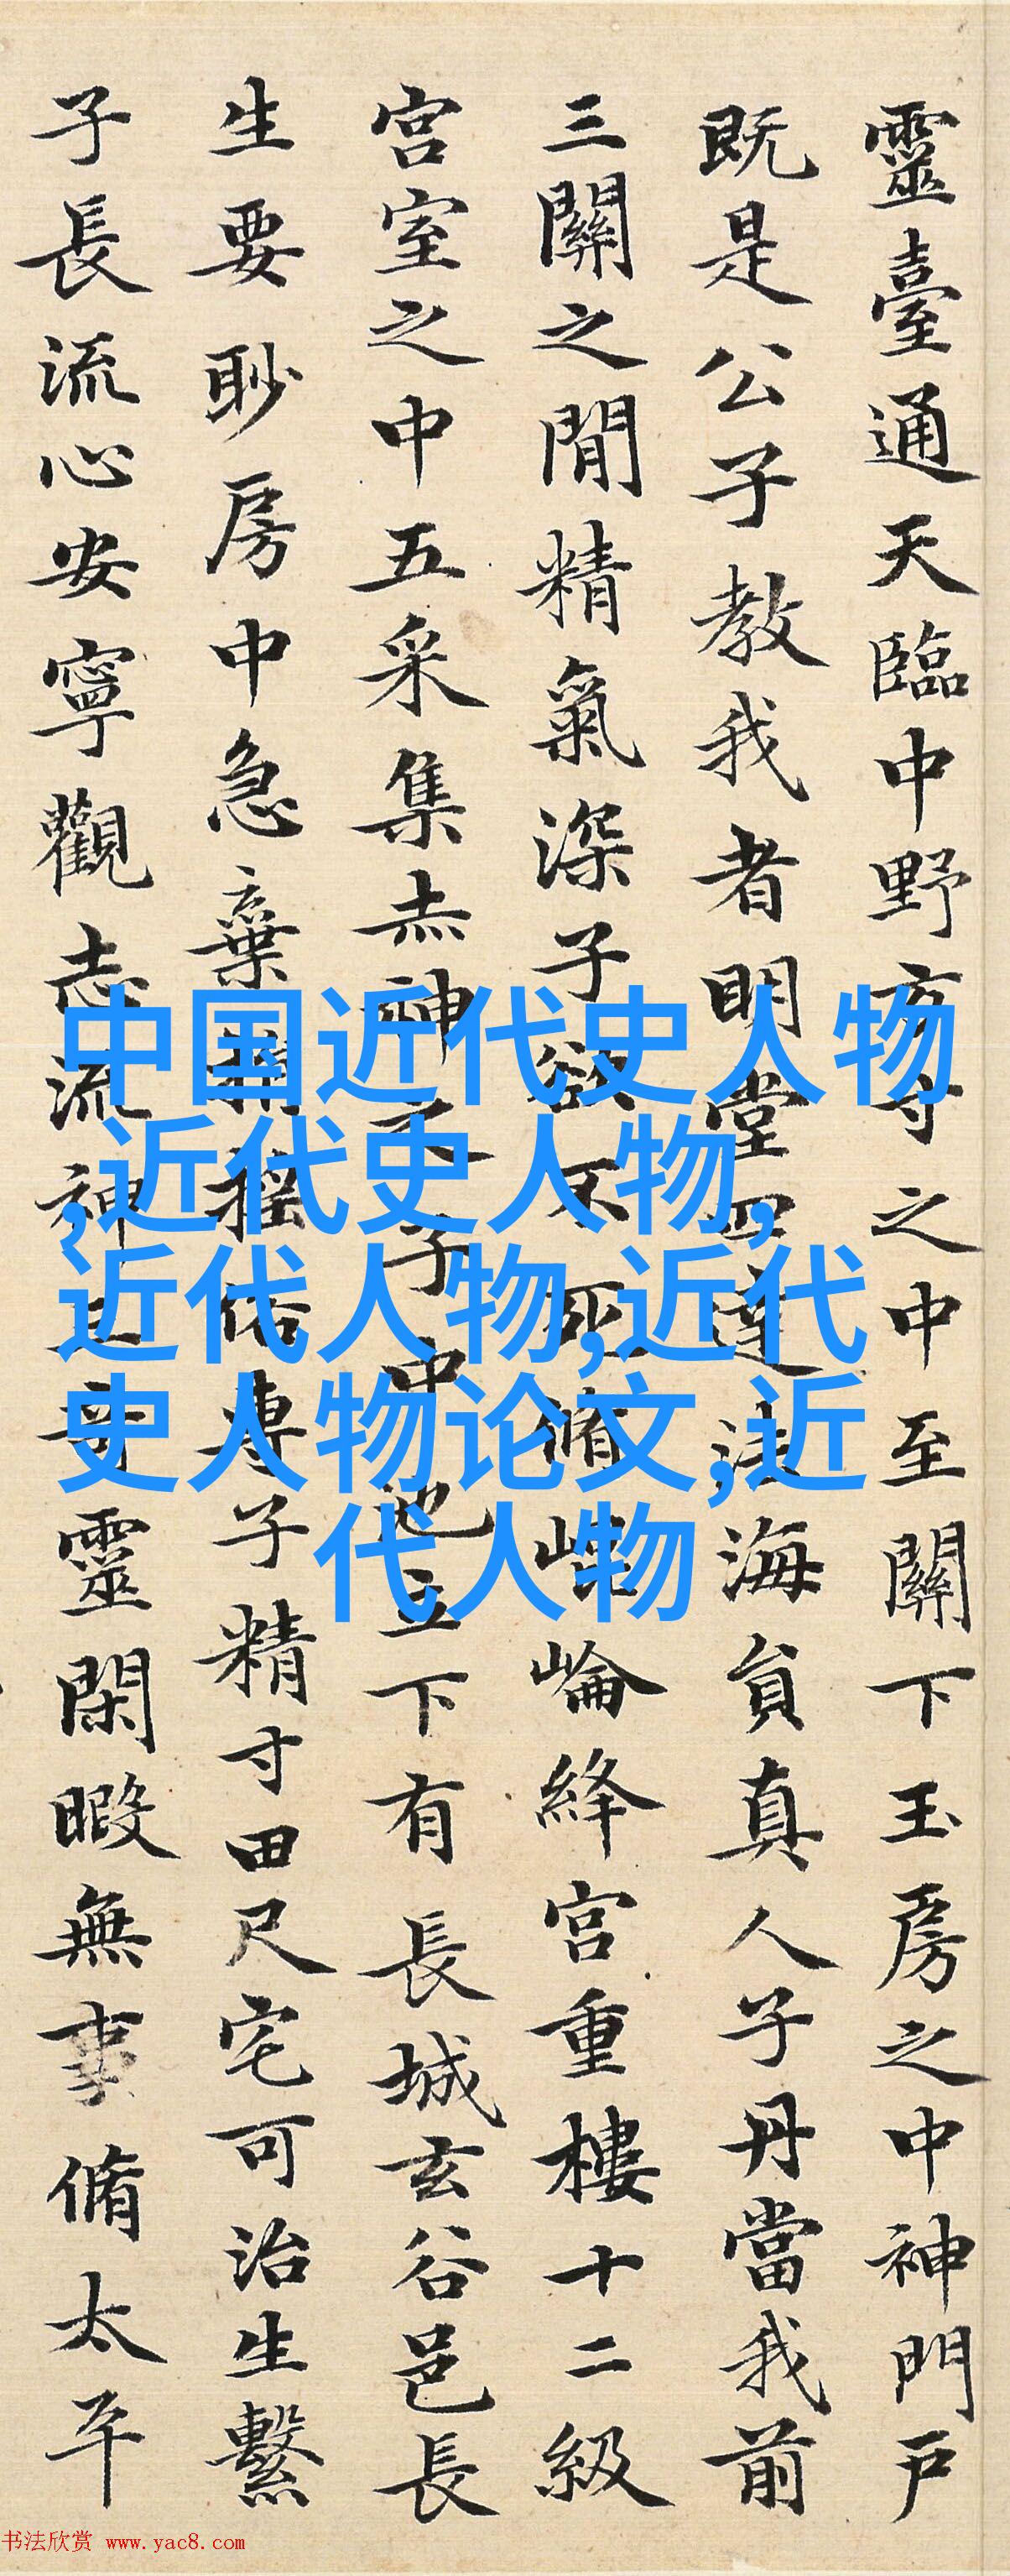 靈臺通天臨中野方寸之中至關下玉房之中神門戶
既是公子教我者明堂四達法海員真人子丹當我前
三關之間精氣深子欲不死脩崐崘絳宮重樓十二級
宮室之中五采集赤神之子中池立下有長城玄谷邑長
生要眇房中急棄捐搖俗專子精寸田尺宅可治生繫
子長流心安寧觀志流神三奇靈閑暇無事脩太平
中国近代史人物
,近代史人物,
近代人物,近代
史人物论文,近
代人物
书法欣赏 www.yac8.com